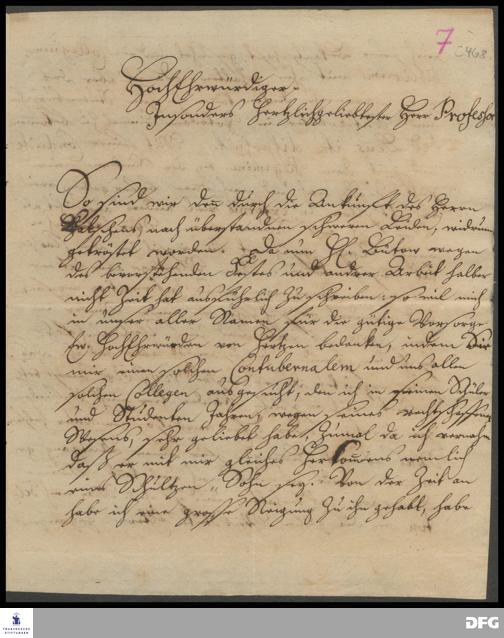 7
HochEhrwürdiger
Insonders Hertzlichgeliebtester Herr Professor
So sind wir den durch die Ankunfft des Herrn
nach überstandnen schweren Leiden, widrum
getröstet worden. Da nun H. Bütow wegen
des bevorstehenden Festes und andrer Arbeit halber
nicht Zeit hat ausführlich zu schreiben: so will mich
in unser aller Namen für die gütige Vorsorge
Ew. HochEhrwürden von Hertzen bedanken, indem Sie
mir einen solchen Contubernalem und uns allen
solchen Collegen ausgesucht, den ich in seinen Schüler
und Studenten Jahren, wegen seines rechtschaffenen
Wesens, sehr geliebet habe, zumal da ich vernahm
daß er mit mir gleiches Herkommens nemlich
eines Schultzen Sohn sey. Von der Zeit an
habe ich eine grosse Neigung zu ihm gehabt, habe
FRANCKESCHE STIFTUNGEN
DFG